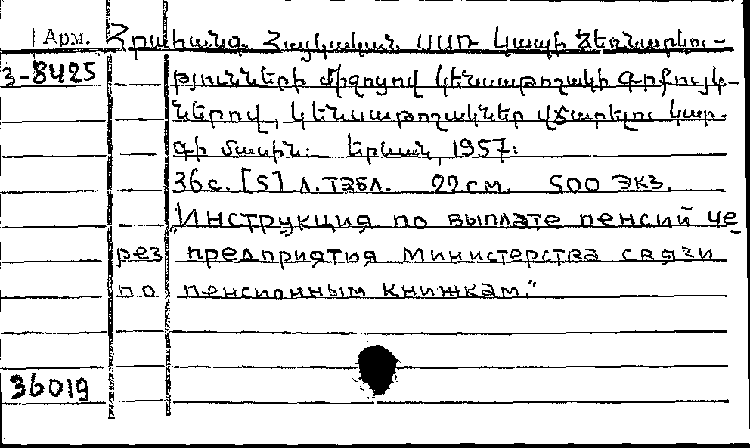 Арм. Հրահանգ Հայկական ՍՍՌ Կապի Ձեռնարկու-
3-8425 թյունների միջոցով կենսաթոշակի գրքույկ-
ներով, կենսաթոշակներ վճարելու կար-
գի մասին: Երևան, 1957:
36с. [5] л. табл. 22 см. 500 экз.
"Инструкция по выплате пенсий че
рез предприятия Министерства связи
по пенсионным книжкам."
36019